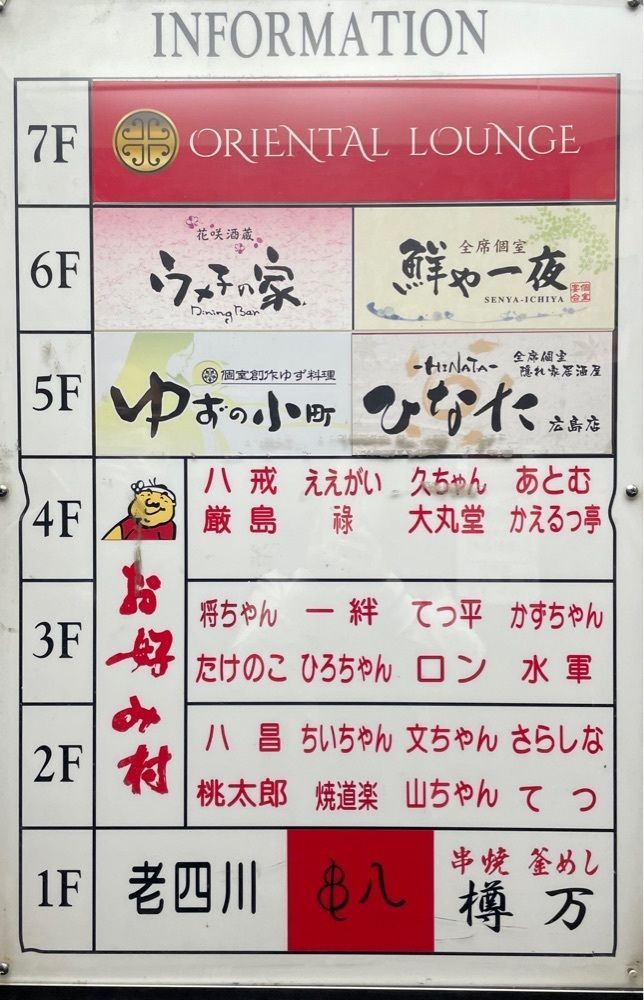 INFORMATION
7F
ORIENTAL LOUNGE
6F
花咲酒蔵
ウメ子の家
Dining Bar
全席個室
鮮や一夜
SENYA-ICHIYA
5F
個室創作ゆず料理
ゆずの小町
-HiNATA-
全席個室
隠れ家居酒屋
ひなた 広島店
4F
八戒 ええがい 久ちゃん あとむ
厳島 祿 大丸堂 かえるっ亭
お好み村
3F
将ちゃん 一絆 てつ平 かずちゃん
たけのこ ひろちゃん ロン 水軍
2F
八昌 ちいちゃん 文ちゃん さらしな
桃太郎 焼道楽 山ちゃん てつ
1F
老四川
八
串焼 釜めし
樽万